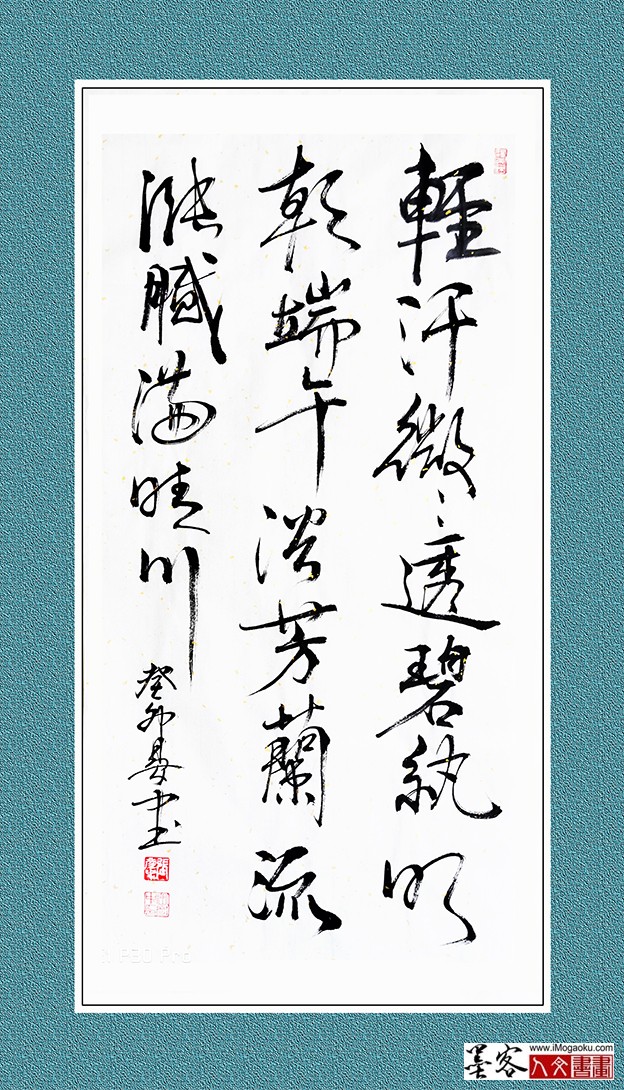 輕汗微〻透碧紈明
朝端午浴芳蘭流
漲膩滿晴川
癸卯晏中书
墨客
www.iMogaoku.com
人文書畫